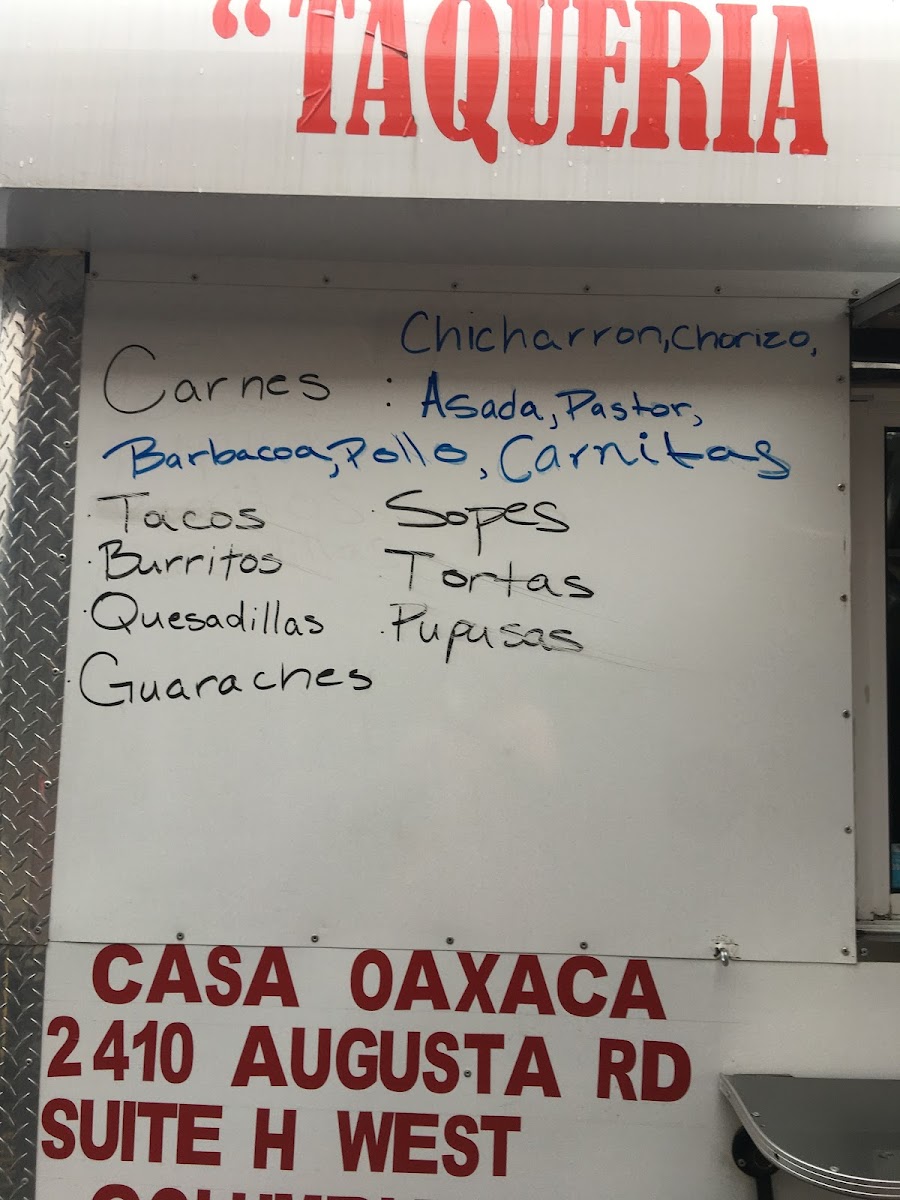 “TAQUERIA
Chicharron, Chorizo,
Carnes : Asada, Pastor,
Barbacoa, Pollo, Carnitas
· Tacos · Sopes
· Burritos Tortas
· Quesadillas · Pupusas
· Guaraches
CASA OAXACA
2410 AUGUSTA RD
SUITE H WEST